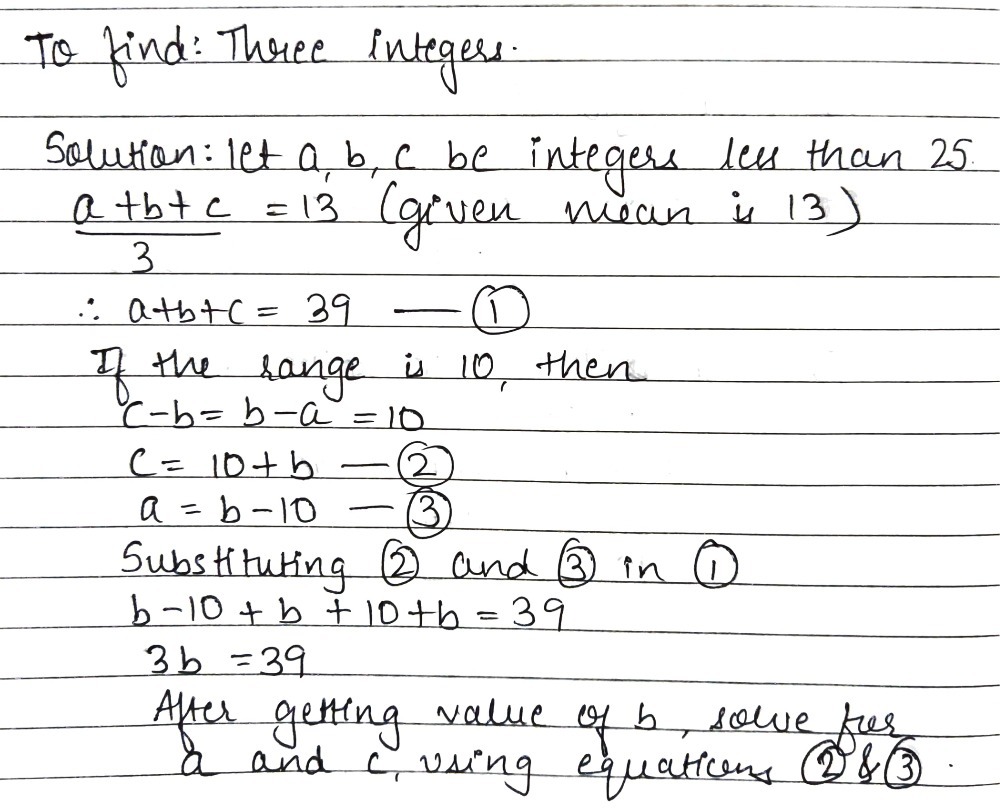 To find: Three integers.
Solution: let a, b, c be integers less than 25.
a+b+c = 13 (given mean is 13)
3
∴ a+b+c = 39 — ①
If the range is 10, then
c-b = b-a = 10
c = 10+b — ②
a = b-10 — ③
Substituting ② and ③ in ①
b-10 + b + 10+b = 39
3b = 39
After getting value of b, solve for
a and c, using equations ② & ③.